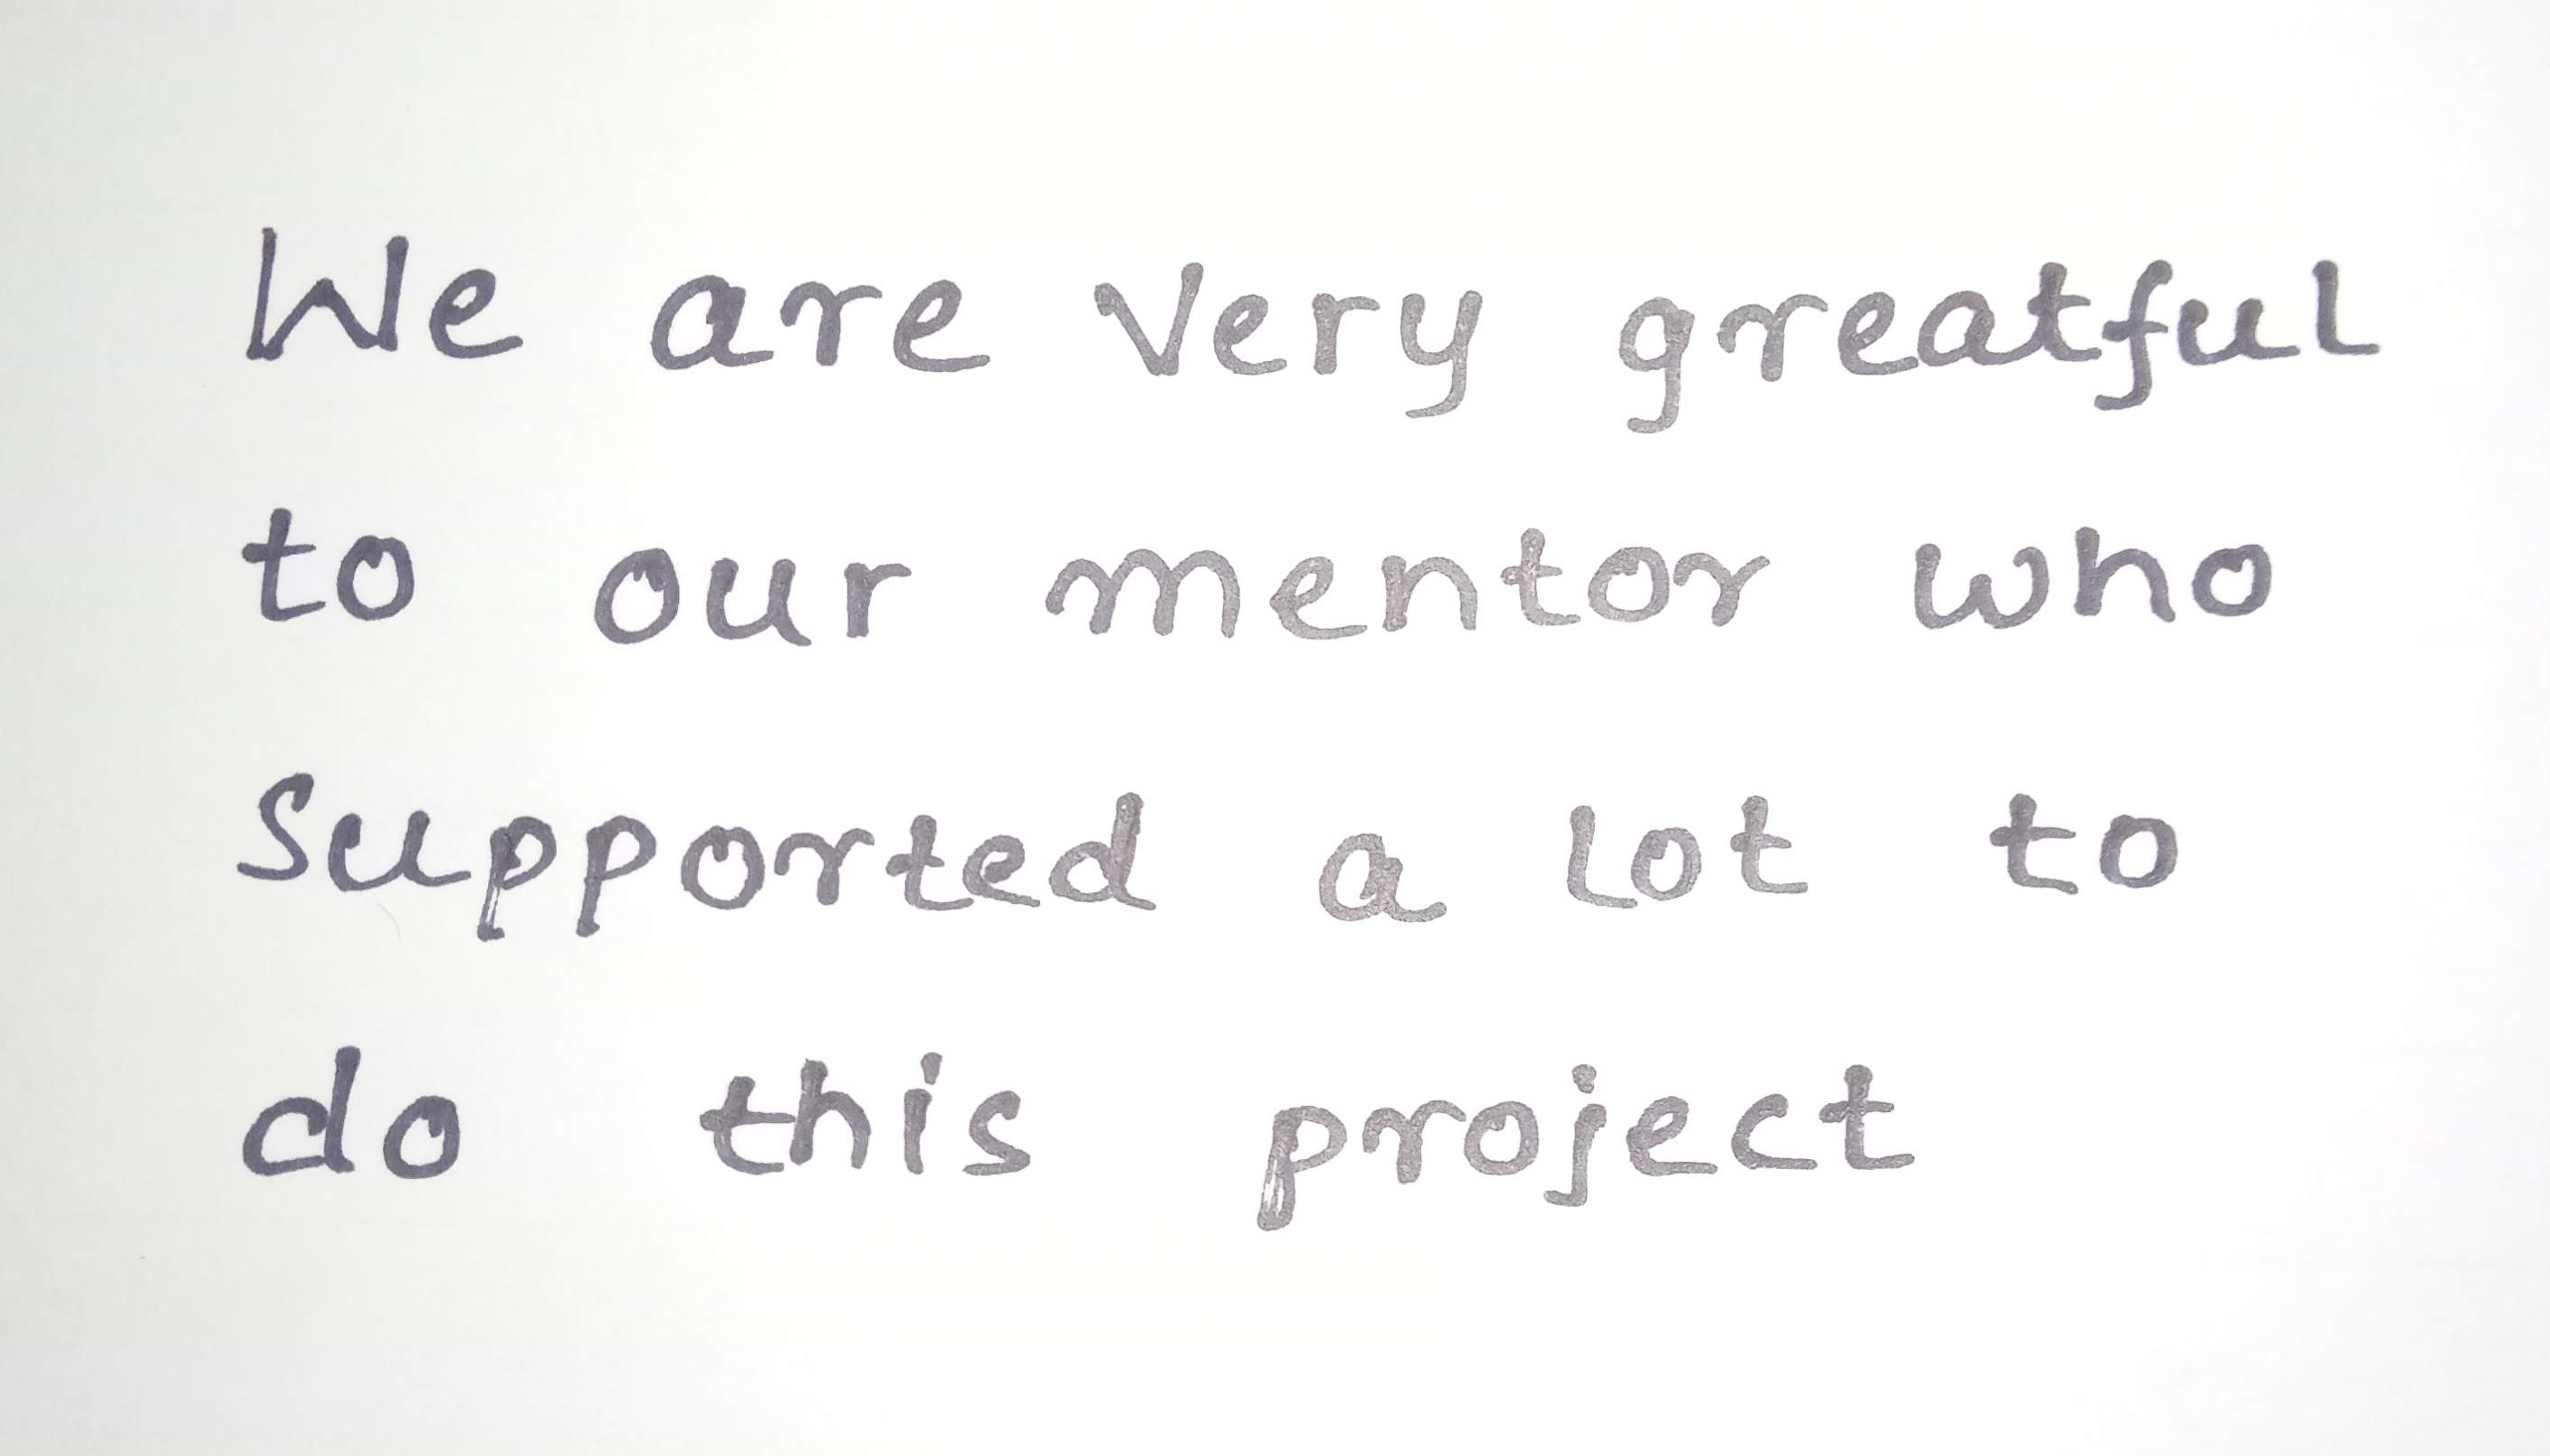 We are very greatful
to our mentor who
supported a lot to
do this project